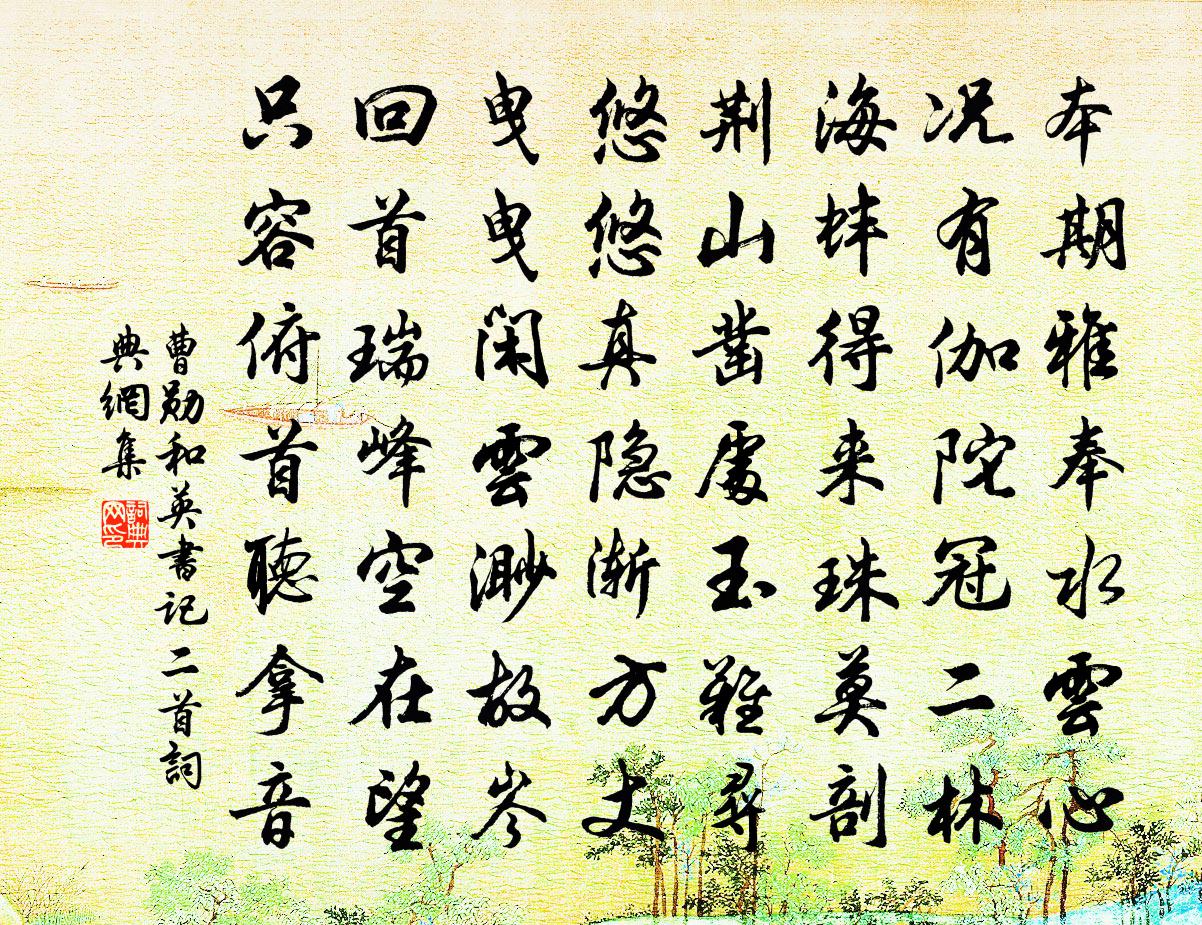 本期雅奉水雲心
况有伽陀冠二林
海蚌得来珠莫剖
荆山凿處玉難尋
悠悠真隐漸方丈
曳曳闲雲渺故岑
回首瑞峰空在望
只容俯首聽拿音
曹勋和英書记二首詞
典網集
詞典网印